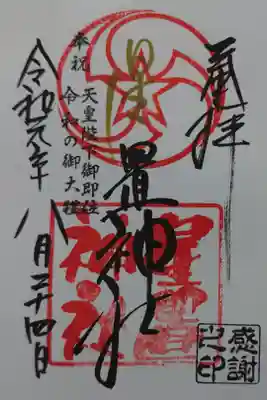 奉拝
奉祝
天皇陛下御即位
令和の御大禮
神社
令和元年八月二十四日
神社
感謝
之印